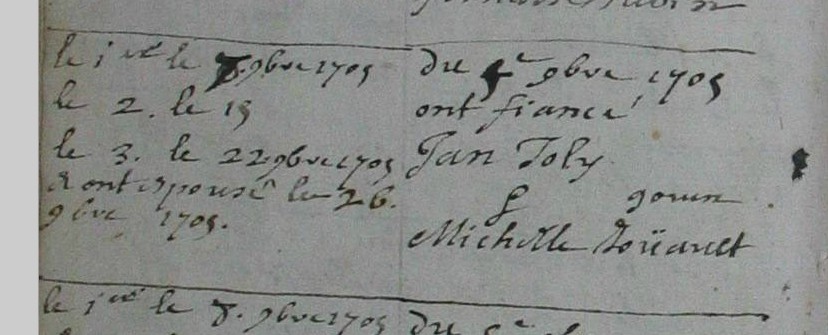 le 1er le 8. 9bre 1705
le 2. le 15
le 3. le 22 9bre 1705
& ont espousé le 26.
9bre 1705.
du 9bre 1705
ont fiancé
Jan Joly
&
Michelle
le 1er le 8. 9bre 1705
du